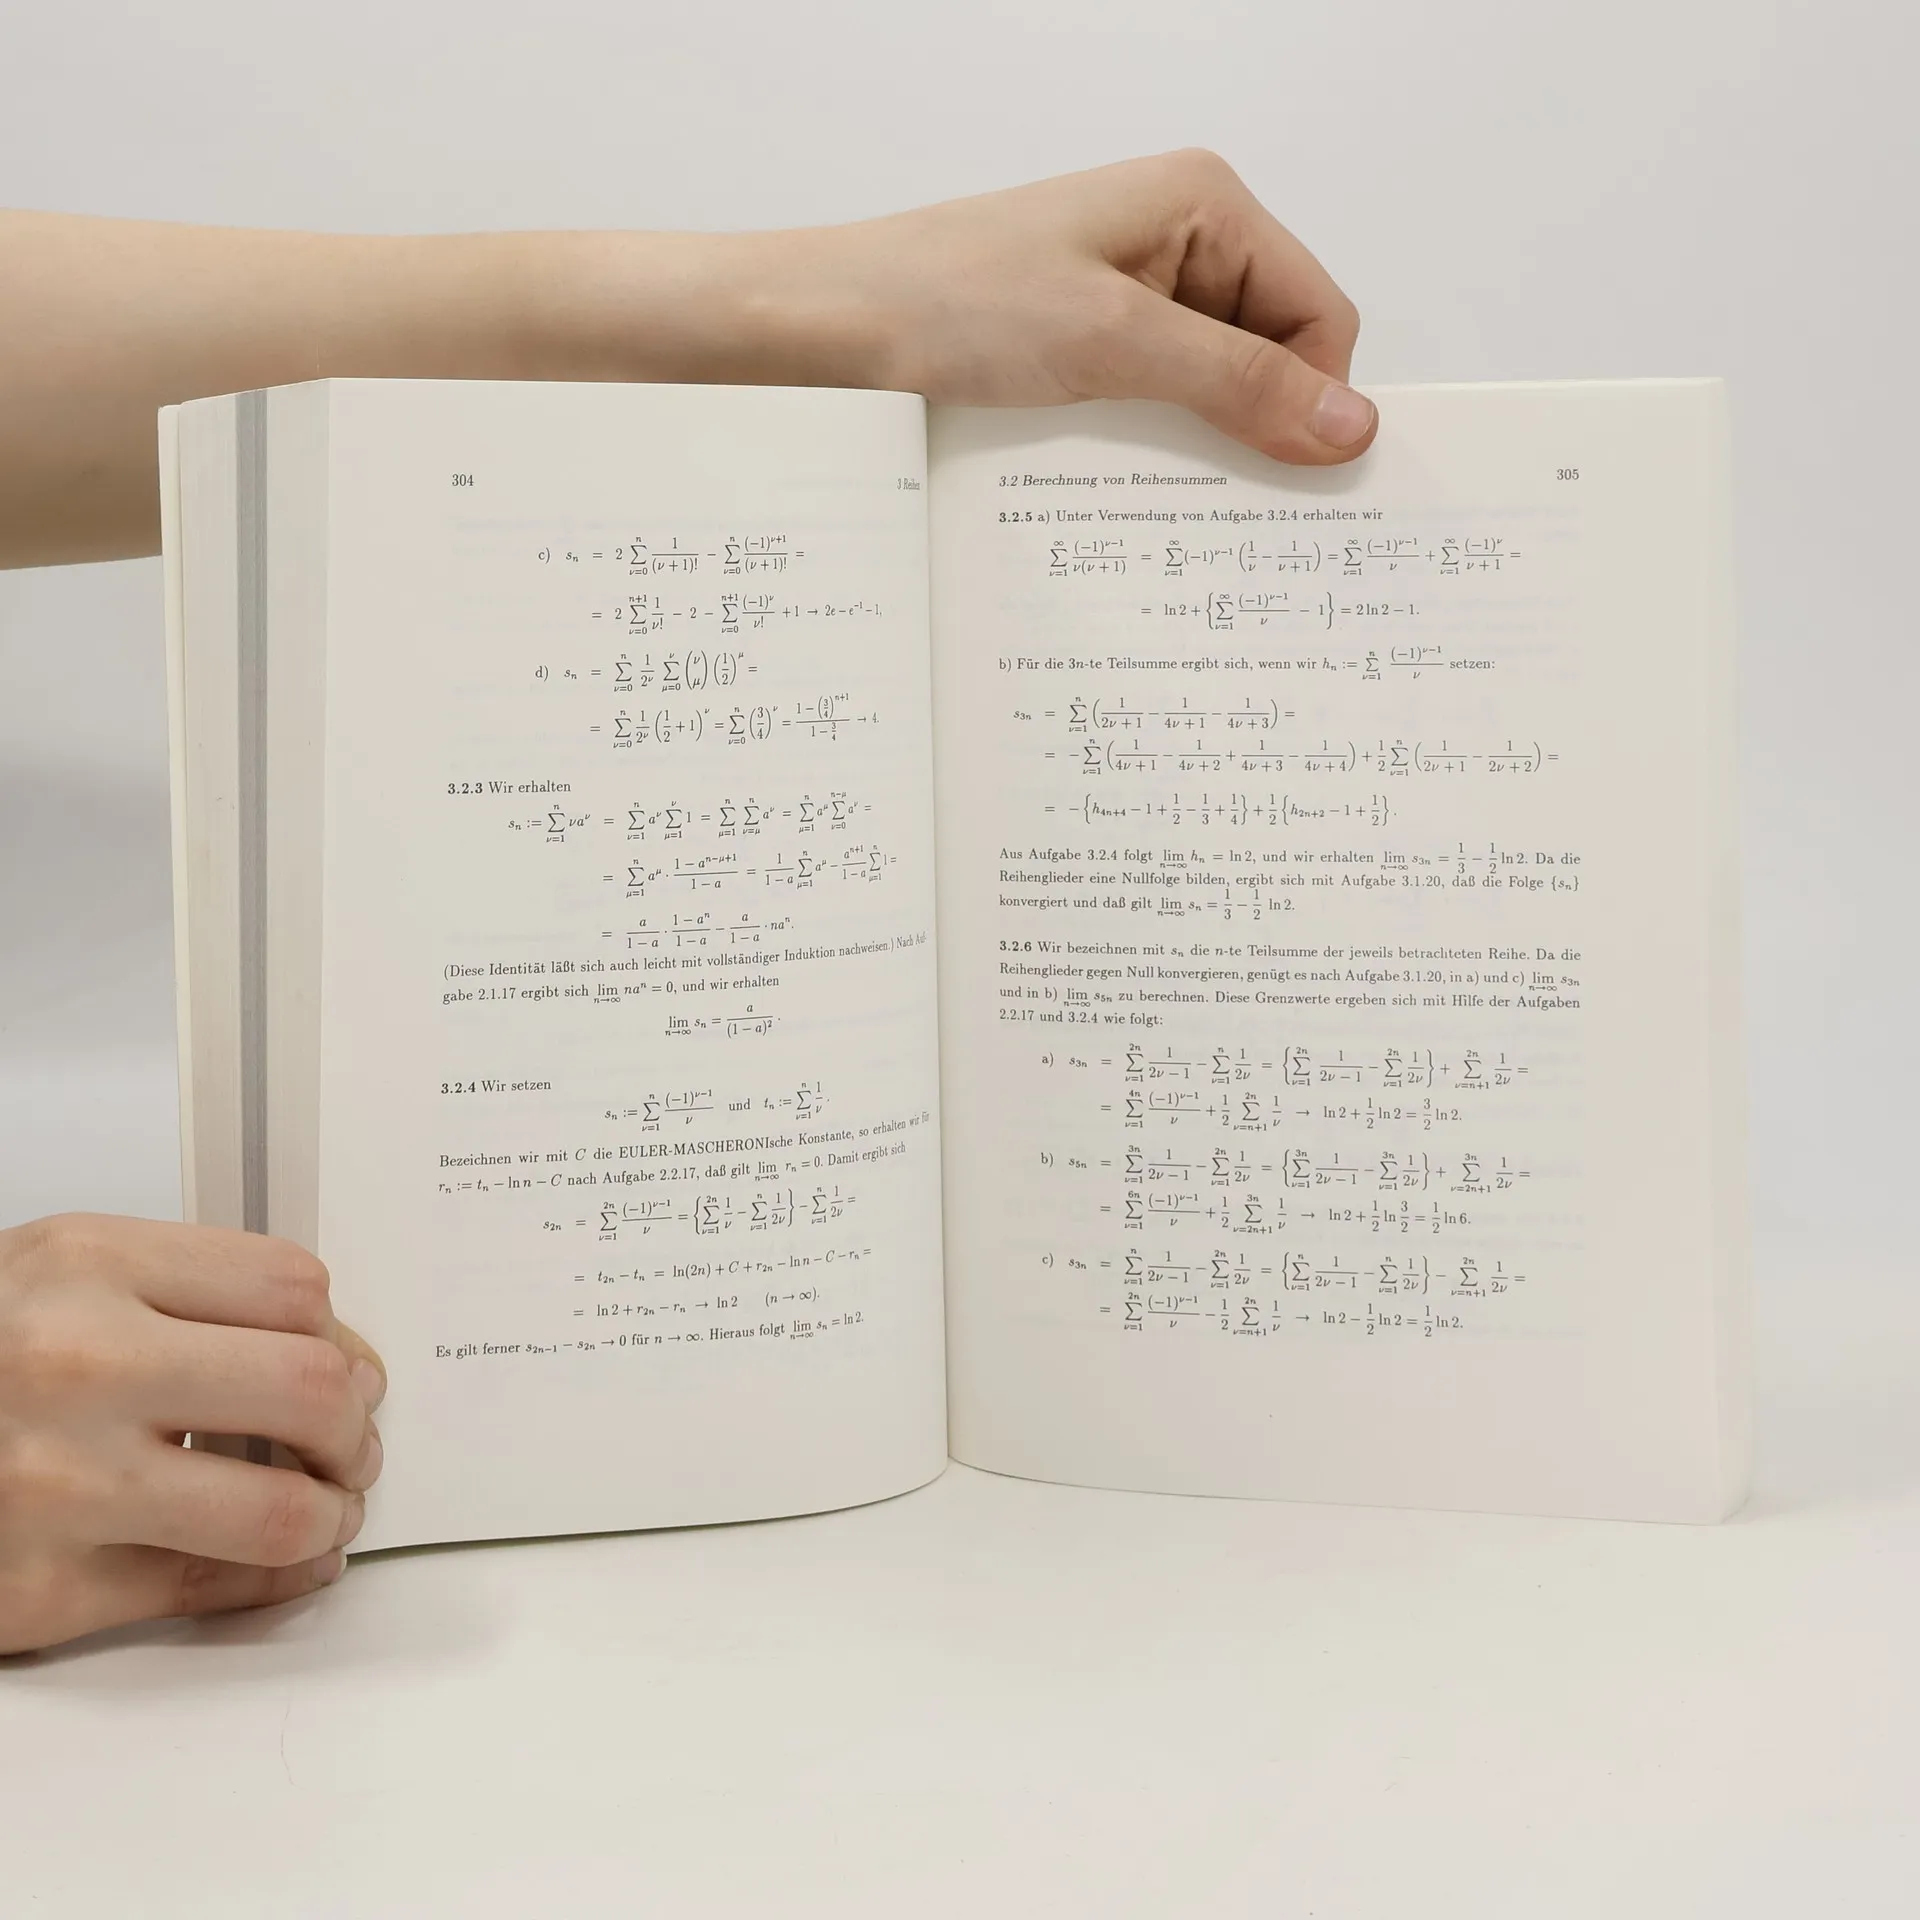 304
3 Reihen
c) sₙ = 2 ∑_{ν=0}^{n} 1/(ν+1)! − ∑_{ν=0}^{n} (−1)^{ν+1}/(ν+1)! =
= 2 ∑_{ν=0}^{n+1} 1/ν! − 2 − ∑_{ν=0}^{n+1} (−1)^ν/ν! + 1 → 2e − e^{−1} − 1,
d) sₙ = ∑_{ν=0}^{n} 1/2^ν ∑_{μ=0}^{ν} (ν μ) (1/2)^μ =
= ∑_{ν=0}^{n} 1/2^ν (1/2 + 1)^ν = ∑_{ν=0}^{n} (3/4)^ν = (1 − (3/4)^{n+1})/(1 − 3/4) → 4.
3.2.3 Wir erhalten
sₙ := ∑_{ν=1}^{n} νa^ν = ∑_{ν=1}^{n} a^ν ∑_{μ=1}^{ν} 1 = ∑_{μ=1}^{n} ∑_{ν=μ}^{n} a^ν = ∑_{μ=1}^{n} a^μ ∑_{ν=0}^{n−μ} a^ν =
= ∑_{μ=1}^{n} a^μ · (1 − a^{n−μ+1})/(1 − a) = 1/(1 − a) ∑_{μ=1}^{n} a^μ − a^{n+1}/(1 − a) ∑_{μ=1}^{n} 1 =
= a/(1 − a) · (1 − a^n)/(1 − a) − a/(1 − a) · na^n.
(Diese Identität läßt sich auch leicht mit vollständiger Induktion nachweisen.) Nach Auf-
gabe 2.1.17 ergibt sich lim_{n→∞} na^n = 0, und wir erhalten
lim_{n→∞} sₙ = a/(1 − a)².
3.2.4 Wir setzen
sₙ := ∑_{ν=1}^{n} (−1)^{ν−1}/ν und tₙ := ∑_{ν=1}^{n} 1/ν.
Bezeichnen wir mit C die EULER-MASCHERONIsche Konstante, so erhalten wir für
rₙ := tₙ − ln n − C nach Aufgabe 2.2.17, daß gilt lim_{n→∞} rₙ = 0. Damit ergibt sich
s_{2n} = ∑_{ν=1}^{2n} (−1)^{ν−1}/ν = {∑_{ν=1}^{2n} 1/ν − ∑_{ν=1}^{n} 1/2ν} − ∑_{ν=1}^{n} 1/2ν =
= t_{2n} − tₙ = ln(2n) + C + r_{2n} − ln n − C − rₙ =
= ln 2 + r_{2n} − rₙ → ln 2 (n → ∞).
Es gilt ferner s_{2n−1} − s_{2n} → 0 für n → ∞. Hieraus folgt lim_{n→∞} sₙ = ln 2.
3.2 Berechnung von Reihensummen 305
3.2.5 a) Unter Verwendung von Aufgabe 3.2.4 erhalten wir
∑_{ν=1}^{∞} (−1)^{ν−1}/ν(ν + 1) = ∑_{ν=1}^{∞} (−1)^{ν−1} (1/ν − 1/(ν + 1)) = ∑_{ν=1}^{∞} (−1)^{ν−1}/ν + ∑_{ν=1}^{∞} (−1)^ν/(ν + 1) =
= ln 2 + {∑_{ν=1}^{∞} (−1)^{ν−1}/ν − 1} = 2 ln 2 − 1.
b) Für die 3n-te Teilsumme ergibt sich, wenn wir hₙ := ∑_{ν=1}^{n} (−1)^{ν−1}/ν setzen:
s_{3n} = ∑_{ν=1}^{n} (1/(2ν + 1) − 1/(4ν + 1) − 1/(4ν + 3)) =
= −∑_{ν=1}^{n} (1/(4ν + 1) − 1/(4ν + 2) + 1/(4ν + 3) − 1/(4ν + 4)) + 1/2 ∑_{ν=1}^{n} (1/(2ν + 1) − 1/(2ν + 2)) =
= −{h_{4n+4} − 1 + 1/2 − 1/3 + 1/4} + 1/2 {h_{2n+2} − 1 + 1/2}.
Aus Aufgabe 3.2.4 folgt lim_{n→∞} hₙ = ln 2, und wir erhalten lim_{n→∞} s_{3n} = 1/3 − 1/2 ln 2. Da die
Reihenglieder eine Nullfolge bilden, ergibt sich mit Aufgabe 3.1.20, daß die Folge {sₙ}
konvergiert und daß gilt lim_{n→∞} sₙ = 1/3 − 1/2 ln 2.
3.2.6 Wir bezeichnen mit sₙ die n-te Teilsumme der jeweils betrachteten Reihe. Da die
Reihenglieder gegen Null konvergieren, genügt es nach Aufgabe 3.1.20, in a) und c) lim_{n→∞} s_{3n}
und in b) lim_{n→∞} s_{5n} zu berechnen. Diese Grenzwerte ergeben sich mit Hilfe der Aufgaben
2.2.17 und 3.2.4 wie folgt:
a) s_{3n} = ∑_{ν=1}^{2n} 1/(2ν − 1) − ∑_{ν=1}^{n} 1/2ν = {∑_{ν=1}^{2n} 1/(2ν − 1) − ∑_{ν=1}^{2n} 1/2ν} + ∑_{ν=n+1}^{2n} 1/2ν =
= ∑_{ν=1}^{4n} (−1)^{ν−1}/ν + 1/2 ∑_{ν=n+1}^{2n} 1/ν → ln 2 + 1/2 ln 2 = 3/2 ln 2.
b) s_{5n} = ∑_{ν=1}^{3n} 1/(2ν − 1) − ∑_{ν=1}^{2n} 1/2ν = {∑_{ν=1}^{3n} 1/(2ν − 1) − ∑_{ν=1}^{3n} 1/2ν} + ∑_{ν=2n+1}^{3n} 1/2ν =
= ∑_{ν=1}^{6n} (−1)^{ν−1}/ν + 1/2 ∑_{ν=2n+1}^{3n} 1/ν → ln 2 + 1/2 ln 3/2 = 1/2 ln 6.
c) s_{3n} = ∑_{ν=1}^{n} 1/(2ν − 1) − ∑_{ν=1}^{2n} 1/2ν = {∑_{ν=1}^{n} 1/(2ν − 1) − ∑_{ν=1}^{n} 1/2ν} − ∑_{ν=n+1}^{2n} 1/2ν =
= ∑_{ν=1}^{2n} (−1)^{ν−1}/ν − 1/2 ∑_{ν=n+1}^{2n} 1/ν → ln 2 − 1/2 ln 2 = 1/2 ln 2.